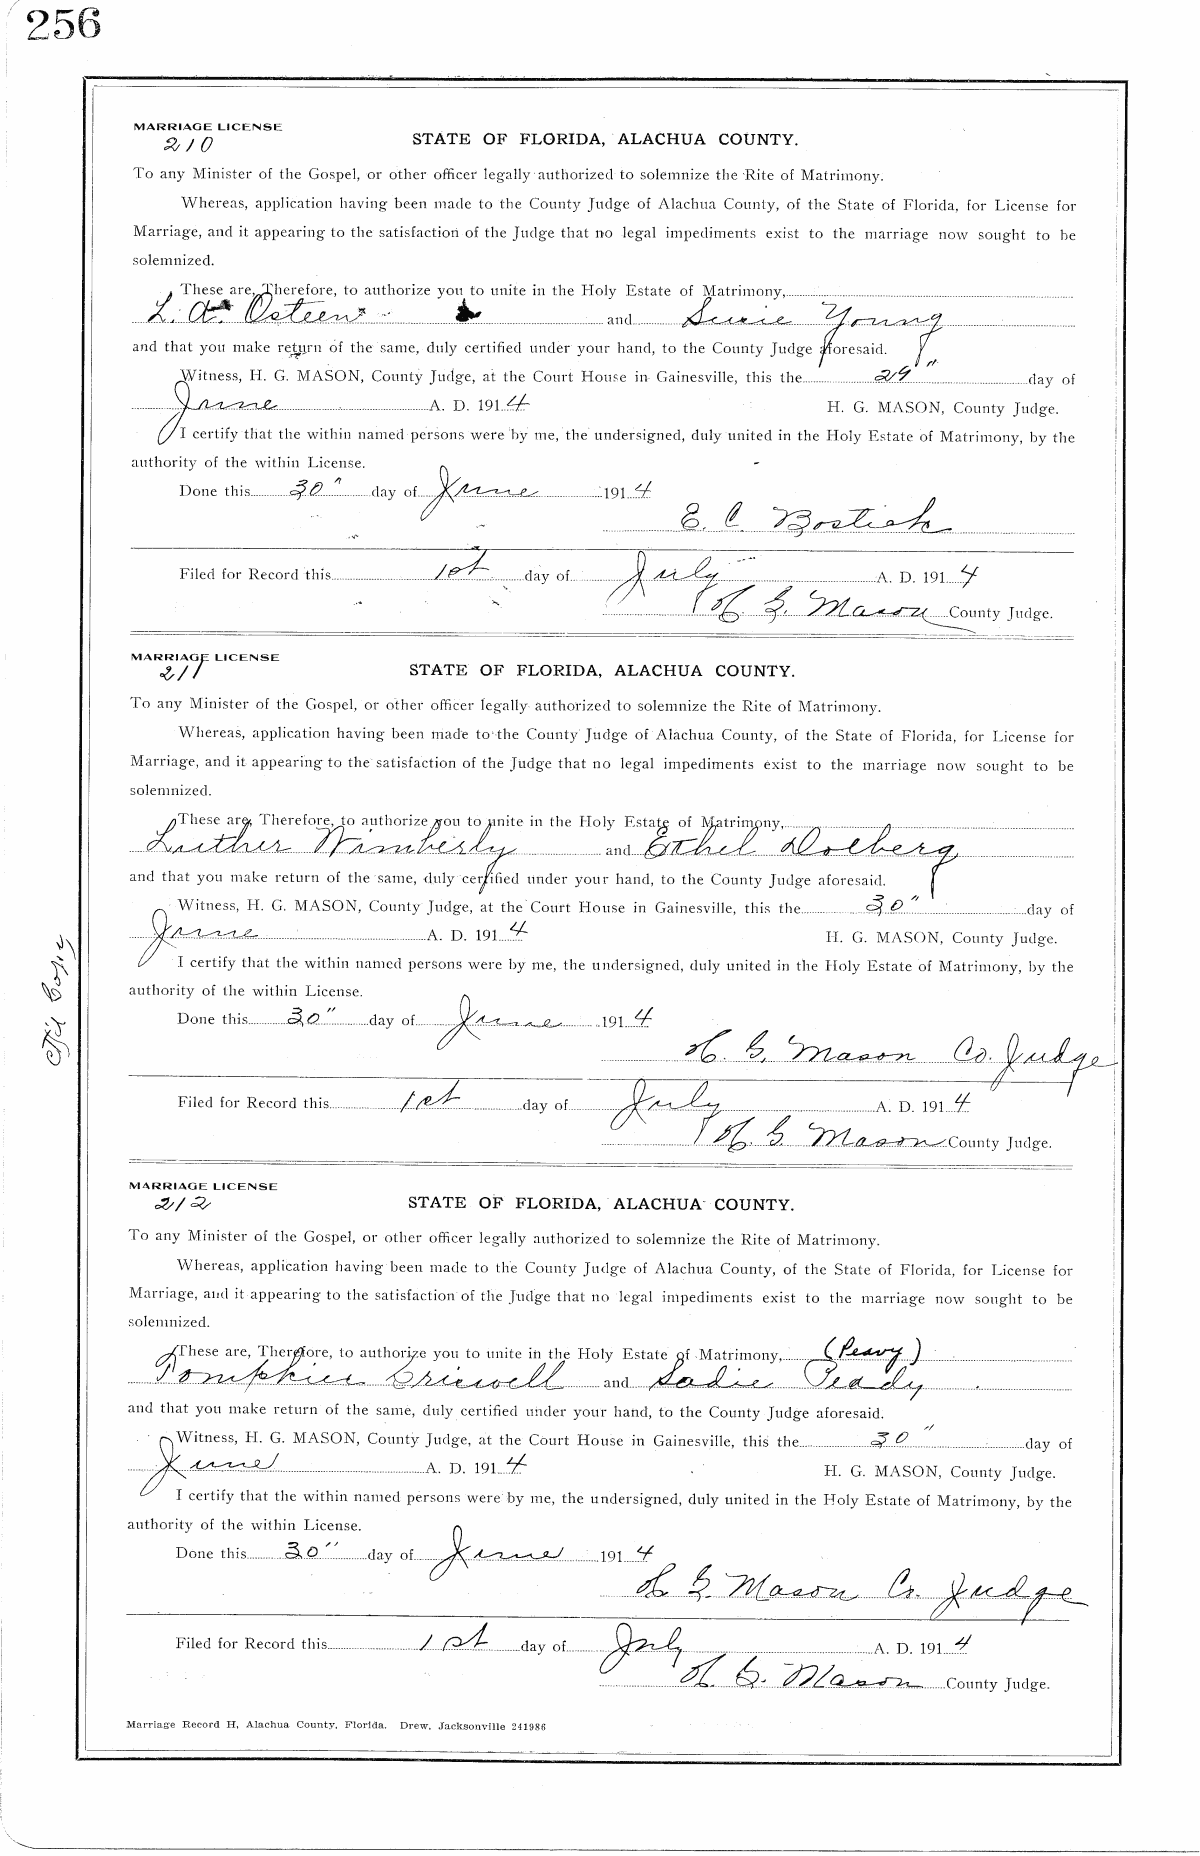 256
MARRIAGE LICENSE
210
STATE OF FLORIDA, ALACHUA COUNTY.
To any Minister of the Gospel, or other officer legally authorized to solemnize the Rite of Matrimony.
Whereas, application having been made to the County Judge of Alachua County, of the State of Florida, for License for
Marriage, and it appearing to the satisfaction of the Judge that no legal impediments exist to the marriage now sought to be
solemnized.
These are, Therefore, to authorize you to unite in the Holy Estate of Matrimony,
L. A. Osteen and Susie Young
and that you make return of the same, duly certified under your hand, to the County Judge aforesaid.
Witness, H. G. MASON, County Judge, at the Court House in Gainesville, this the 29" day of
June A. D. 1914 H. G. MASON, County Judge.
I certify that the within named persons were by me, the undersigned, duly united in the Holy Estate of Matrimony, by the
authority of the within License.
Done this 30" day of June 1914
E. C. Bostick
Filed for Record this 1st day of July A. D. 1914
H. G. Mason County Judge.
MARRIAGE LICENSE
211
STATE OF FLORIDA, ALACHUA COUNTY.
To any Minister of the Gospel, or other officer legally authorized to solemnize the Rite of Matrimony.
Whereas, application having been made to the County Judge of Alachua County, of the State of Florida, for License for
Marriage, and it appearing to the satisfaction of the Judge that no legal impediments exist to the marriage now sought to be
solemnized.
These are, Therefore, to authorize you to unite in the Holy Estate of Matrimony,
Luther Wimberly and Ethel Dolberg
and that you make return of the same, duly certified under your hand, to the County Judge aforesaid.
Witness, H. G. MASON, County Judge, at the Court House in Gainesville, this the 30" day of
June A. D. 1914 H. G. MASON, County Judge.
I certify that the within named persons were by me, the undersigned, duly united in the Holy Estate of Matrimony, by the
authority of the within License.
Done this 30" day of June 1914
H. G. Mason Co. Judge
Filed for Record this 1st day of July A. D. 1914
H. G. Mason County Judge.
Copy
MARRIAGE LICENSE
212
STATE OF FLORIDA, ALACHUA COUNTY.
To any Minister of the Gospel, or other officer legally authorized to solemnize the Rite of Matrimony.
Whereas, application having been made to the County Judge of Alachua County, of the State of Florida, for License for
Marriage, and it appearing to the satisfaction of the Judge that no legal impediments exist to the marriage now sought to be
solemnized.
These are, Therefore, to authorize you to unite in the Holy Estate of Matrimony, (Peavy)
Pompkin Criswell and Sadie Peady
and that you make return of the same, duly certified under your hand, to the County Judge aforesaid.
Witness, H. G. MASON, County Judge, at the Court House in Gainesville, this the 30" day of
June A. D. 1914 H. G. MASON, County Judge.
I certify that the within named persons were by me, the undersigned, duly united in the Holy Estate of Matrimony, by the
authority of the within License.
Done this 30" day of June 1914
H. G. Mason Co. Judge
Filed for Record this 1st day of July A. D. 1914
H. G. Mason County Judge.
Marriage Record H, Alachua County, Florida. Drew, Jacksonville 241986